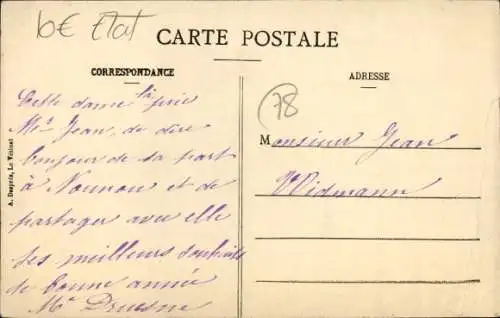 6€ Etat
CARTE POSTALE
CORRESPONDANCE
ADRESSE
78
Cette dame là prie
Mr Jean, de dire
bonjour de sa part
à Nounou et de
partager avec elle
ses meilleurs souhaits
de bonne année
Me Druesne
Monsieur Jean
Widmann
A. Desprin, Le Vésinet